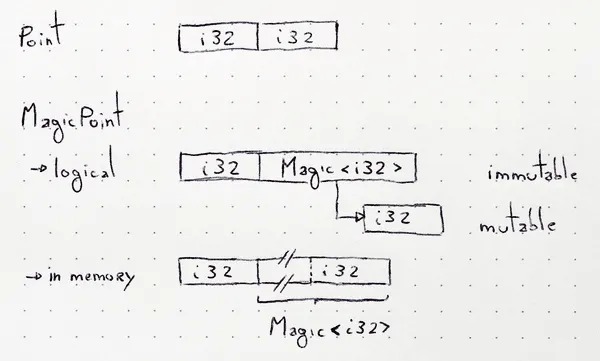 Point i32 i32
MagicPoint
→ logical i32 Magic<i32> immutable
i32 mutable
→ in memory i32 // i32
Magic<i32>